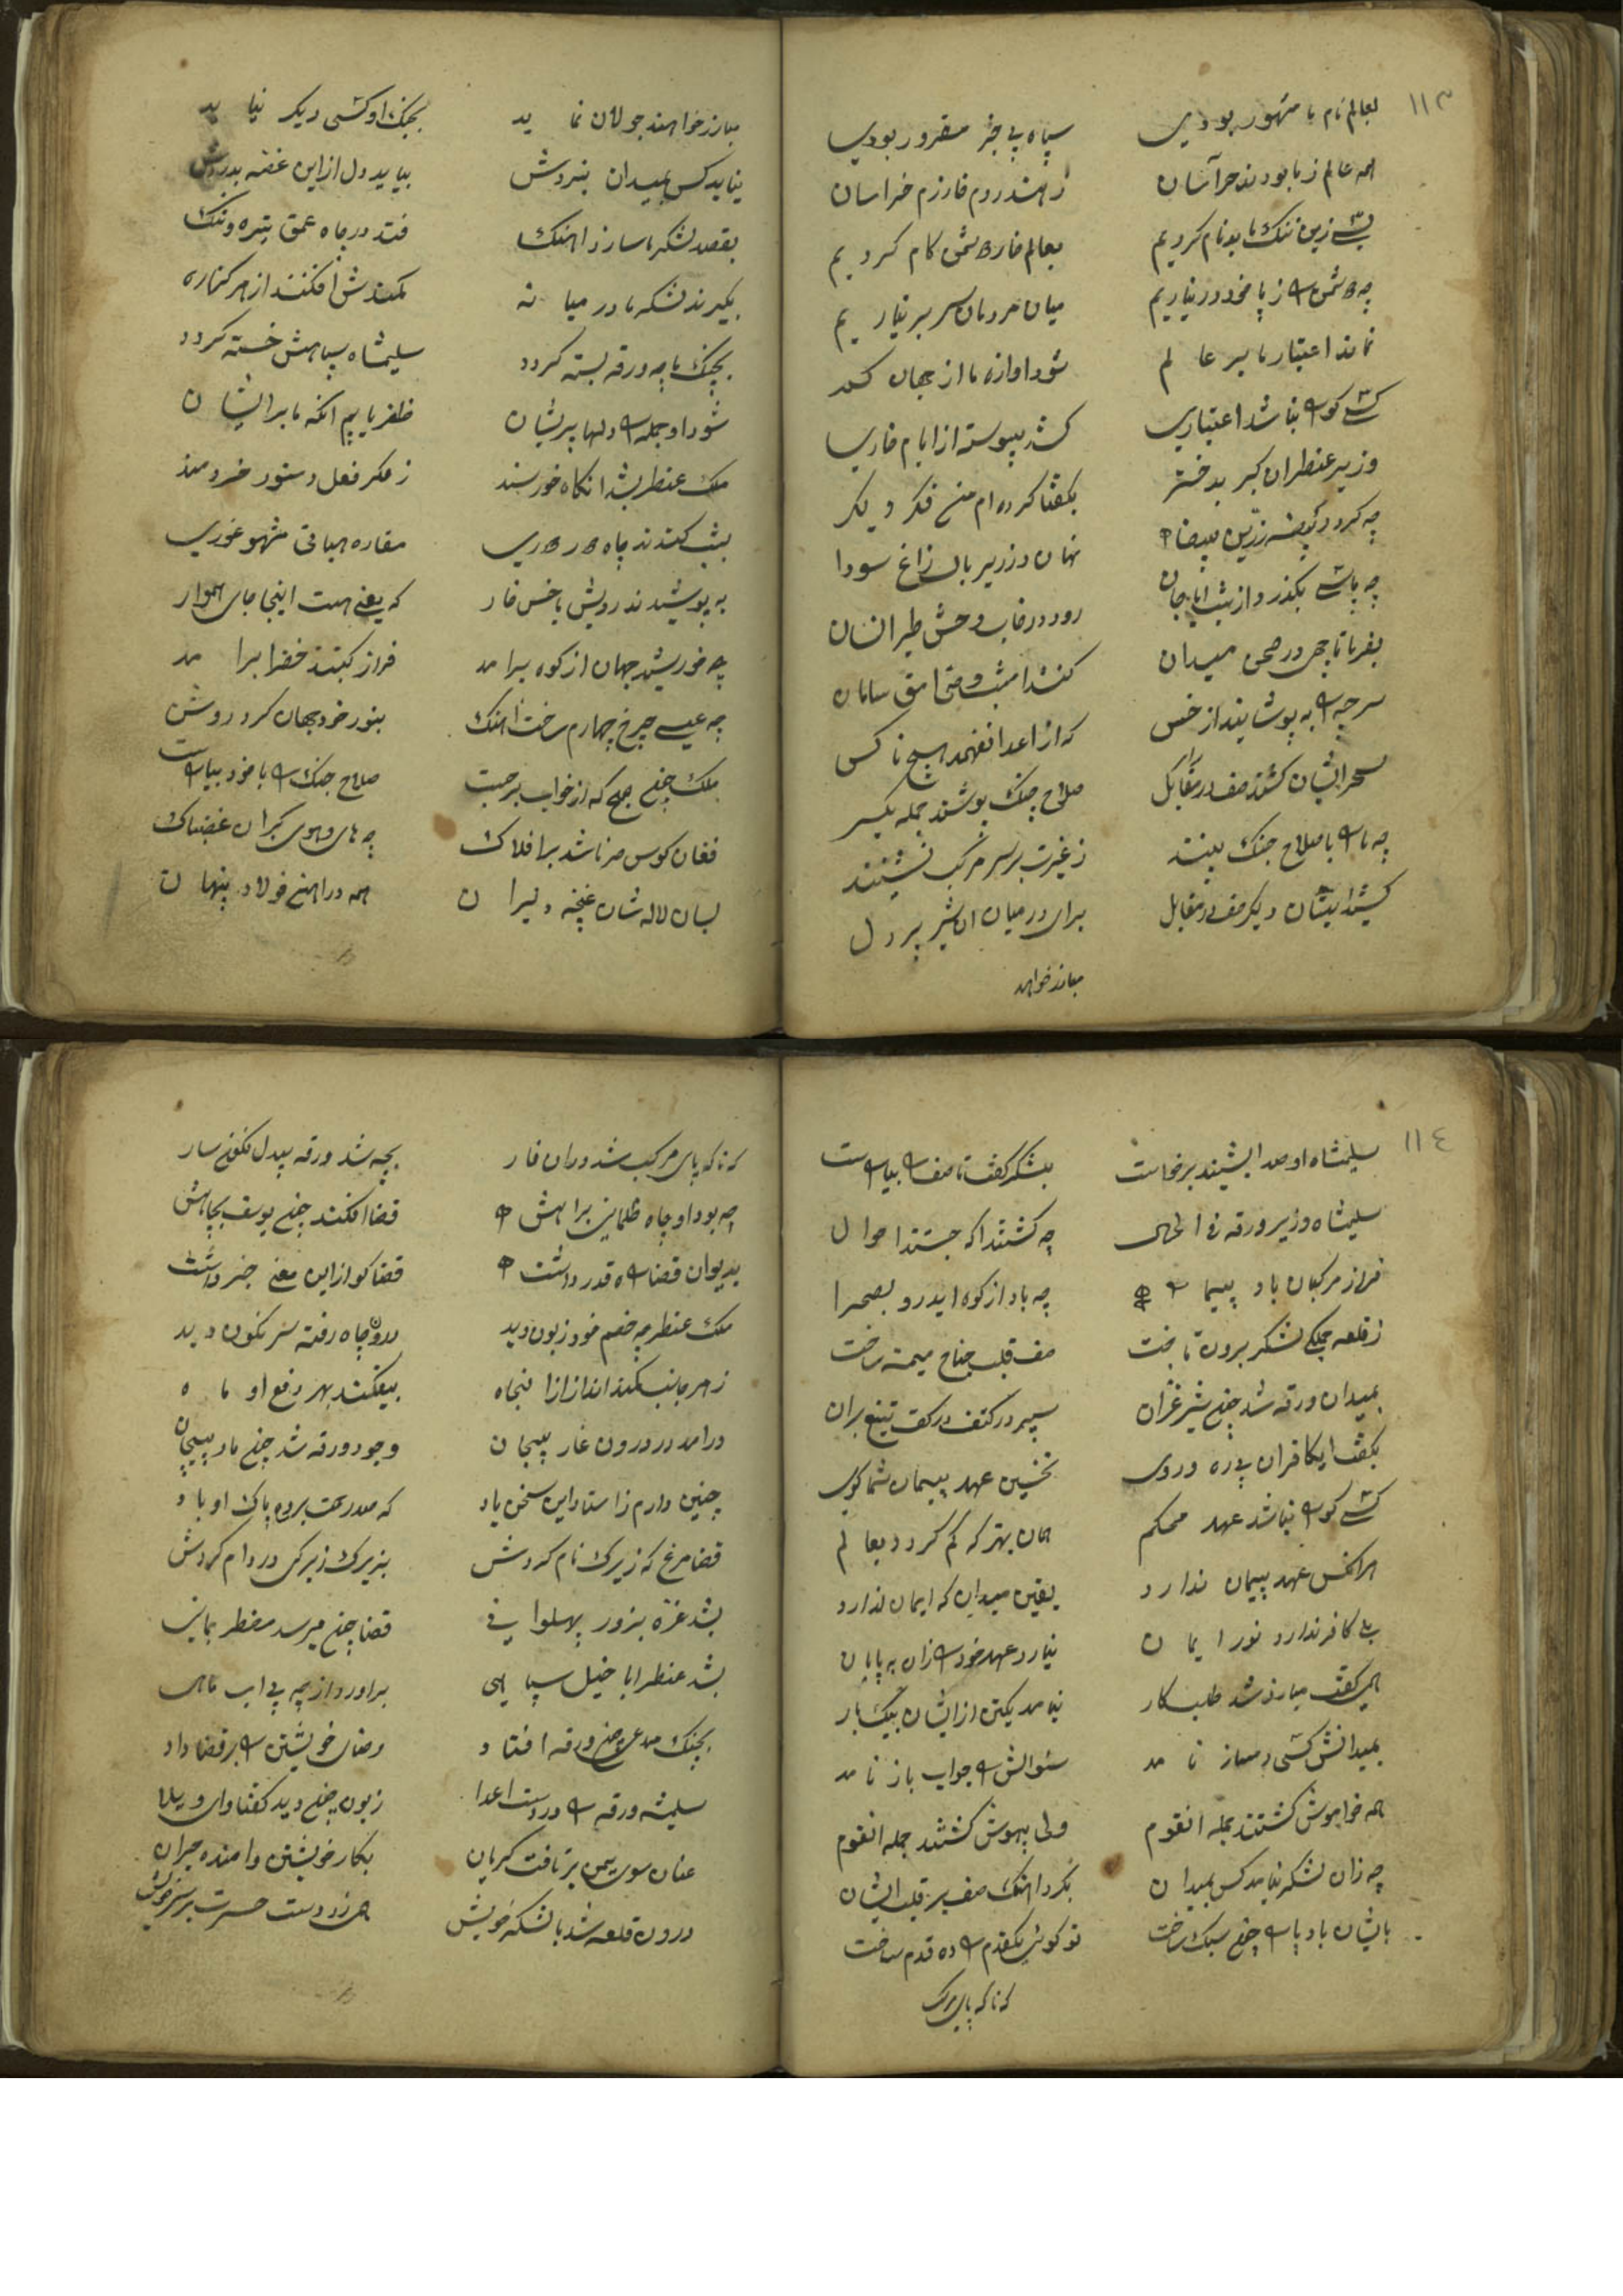 ۱۱۳
بعالم نام ما مشهور بودی سپاه بی مقرور بودی
همه عالم ز ما بودند هراسان ز هند روم خارزم خراسان
بسی زین ننک ما بدنام کردیم بعالم خار دشمن کام کردیم
چه دشمن را ز پا خود در نیاریم میان مردمان سر بر نیاریم
نماند اعتبار ما بر عالم شود اوازه ما از جهان کم
کسی کو را نباشد اعتباری کشد پیوسته از ایام خاری
وزیر عنطران کبر بد ختر بکفتا کرده ام من فکر دیکر
چه کردد بیضه زرین بیضا نهان در زیر بال زاغ سودا
چه پاسی بکذرد از شب رود در خاب وحش طیر انسان
بفرما تا چهی در صحن میدان کنند امشب سامان
سر چه را به پوشایند از خس که از اعدا نفهمد هیچ ناکس
سحر ایشان کشند صف در مقابل صلاح جنک پوشند جمله یکسر
چه ما را با صلاح جنک بینند ز غیرت بر سر مرکب نشینند
کشند ایشان دیکر صف در مقابل برای در میان ان شیر پر دل
مبارز خواهد
مبارز خواهند جولان نماید بجنک او کسی دیکر نیاید
نیاید کس بمیدان نبردش بیاید دل از این غصه بدردش
بقصد لشکر ما سازد اهنک فتد در چاه عمق تیره و تنک
بکیرند لشکر ما در میانه کمندش افکنند از هر کناره
بجنک ما چه ورقه بسته کردد سلیمشاه سپاهش خسته کردد
شود او جمله را دلها پریشان ظفر یابیم انکه ما بر ایشان
ملک عنطر بشد انکاه خورسند ز فکر فعل دستور خردمند
بشب کندند چاه مغاره
به پوشیدند رویش با خس خار که یعنی هست اینجا جای هموار
چه خورشید جهان از کوه برامد فراز کنبد خضرا برامد
چه عیسی چرخ چهارم ساخت اهنک بنور خود جهان کرد روشن
ملک چون صبح که از خواب برجست صلاح جنک را با خود بیاراست
فغان کوس صرنا شد بر افلاک چه های و هوی کبران غضبناک
بسان لاله شان غنچه دلیران همه در اهن فولاد پنهان
۱۱٤
سلیمشاه او صدا بشنید برخاست بلشکر کفت تا صف را بیاراست
سلیمشاه وزیر ورقه فی الحال چه کشتند اکه جستند احوال
فراز مرکبان باد پیما را چه باد از کوه ایدر و بصحرا
ز قلعه جملکی لشکر برون تاخت صف قلب جناح میمنه ساخت
بمیدان ورقه شد چون شیر غران سپر در کتف در کف تیغ بران
بکفت ایکافران بی ره و روی نخستین عهد پیمان شما کوی
کسی کو را نباشد عهد محکم همان بهتر که کم کردد بعالم
هر انکس عهد پیمان ندارد یقین میدان که ایمان ندارد
بلی کافر ندارد نور ایمان نیارد عهد خود را زان به پایان
همی کفت مبارز شد طلبکار نیامد یکتن از ایشان بیکبار
بمیدانش کسی دمساز نامد سئوالش را جواب باز نامد
همه خواموش کشتند جمله انقوم ولی بیهوش کشتند جمله انقوم
چه زان لشکر نیامد کس بمیدان بکرد اهنک صف بر قلب ایشان
بایشان باد پا را چون سبک ساخت تو کوئی یکقدم را ده قدم ساخت
که ناکه پای مرکب
که ناکه پای مرکب شد دران غار بچه شد ورقه بیدل نکونسار
چه بود او چاه ظلمانی براهش قضا افکند چون یوسف بچاهش
بدیوان قضا را قدر داشت قضا کو از این معنی خبر داشت
ملک عنطر چه خصم خود زبون دید درون چاه رفته سر نکون دید
ز هر جانب کمند انداز پنجاه بیفکند بهر دفع او ماه
درامد در درون غار پیچان وجود ورقه شد چون مار پیچان
چنین دارم ز استاد این سخن یاد که صد رحمت بروح پاک او باد
قضا مرغی که زیرک نام کردش بزیرک زیرکی در دام کردش
بشد غره بزور پهلوانی قضا چون میرسد مضطر بمانی
بشد عنطر ابا خیل سپاهی براورد از چه بی اب ماهی
بجنک مدعی چون ورقه افتاد رضای خویشتن را بر قضا داد
سلیمشه ورقه را در دست اعدا زبون چون دید کفتا وای ویلا
عنان سوی یمن برتافت کریان بکار خویشتن وامنده حیران
درون قلعه شد با لشکر خویش همی زد دست حسرت بر سر خویش